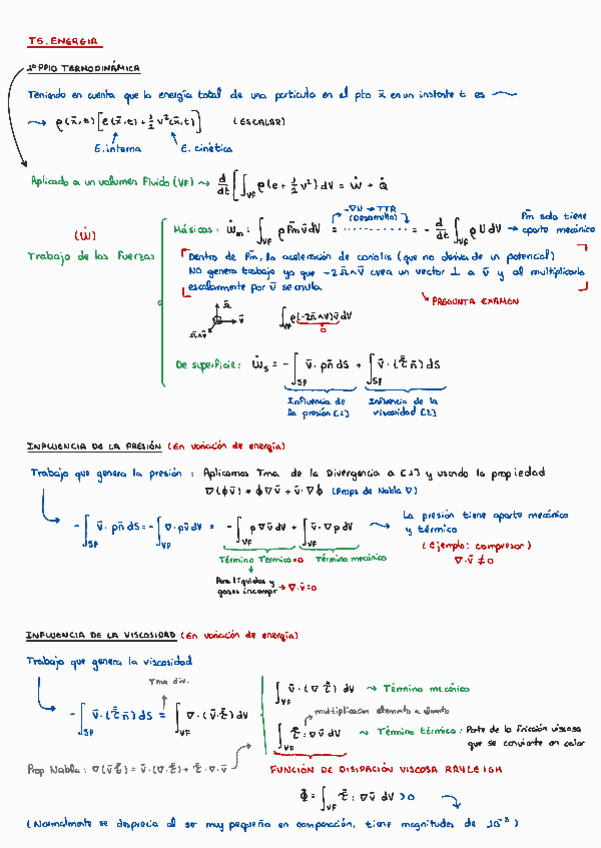 T5. ENERGIA
1º PPIO TERMODINÁMICA
Teniendo en cuenta que la energía total de una partícula en el pto x̄ en un instante t es
ρ(x̄,t) [e(x̄,t) + ½ v²(x̄,t)] (ESCALAR)
E. interna E. cinética
Aplicado a un volumen Fluido (VF) ⇝ d/dt [∫_VF ρ(e + ½ v²) dV = Ẇ + Q̇
(Ẇ)
Trabajo de las Fuerzas
Másicas: Ẇm: ∫_VF ρ f̄m v̄ dV = ········· = - d/dt ∫_VF ρ U dV → f̄m solo tiene aporte mecánico
-∇U → TTR (Desarrollo)
Dentro de f̄m, la aceleración de coriolis (que no deriva de un potencial)
NO genera trabajo ya que -2Ω̄∧v̄ crea un vector ⊥ a v̄ y al multiplicarla
escalarmente por v̄ se anula.
PREGUNTA EXAMEN
Ω̄ v̄ Ω̄∧v̄ ∫_VF ρ(-2Ω̄∧v̄)v̄ dV 0
De superficie: Ẇs = - ∫_SF v̄ · p n̄ dS + ∫_SF v̄ · (τ̄ n̄) dS
Influencia de la presión [1] Influencia de la viscosidad [2]
INFLUENCIA DE LA PRESIÓN (En variación de energía)
Trabajo que genera la presión: Aplicamos Tma de la Divergencia a [1] y usando la propiedad
∇(ϕv̄) = ϕ∇v̄ + v̄·∇ϕ (Props de Nabla ∇)
- ∫_SF v̄ · p n̄ dS = - ∫_VF ∇ · p v̄ dV = - ∫_VF p ∇v̄ dV + ∫_VF v̄ · ∇p dV
La presión tiene aporte mecánico y térmico
(Ejemplo: compresor)
∇·v̄ ≠ 0
Término Térmico = 0 Término mecánico
Para líquidos y gases incompr → ∇·v̄ = 0
INFLUENCIA DE LA VISCOSIDAD (En variación de energía)
Trabajo que genera la viscosidad
Tma div.
- ∫_SF v̄ · (τ̄ n̄) dS = ∫_VF ∇ · (v̄ · τ̄) dV
∫_VF v̄ · (∇ τ̄) dV ⇝ Término mecánico
multiplicacion elemento a elemento
∫_VF τ̄ : ∇v̄ dV ⇝ Término térmico: Parte de la fricción viscosa
que se convierte en calor
Prop Nabla: ∇(v̄ τ̄) = v̄·(∇·τ̄) + τ̄·∇·v̄
FUNCIÓN DE DISIPACIÓN VISCOSA RAYLEIGH
Φ = ∫_VF τ̄ : ∇v̄ dV > 0
(Normalmente se desprecia al ser muy pequeño en comparación, tiene magnitudes de 10⁻³)